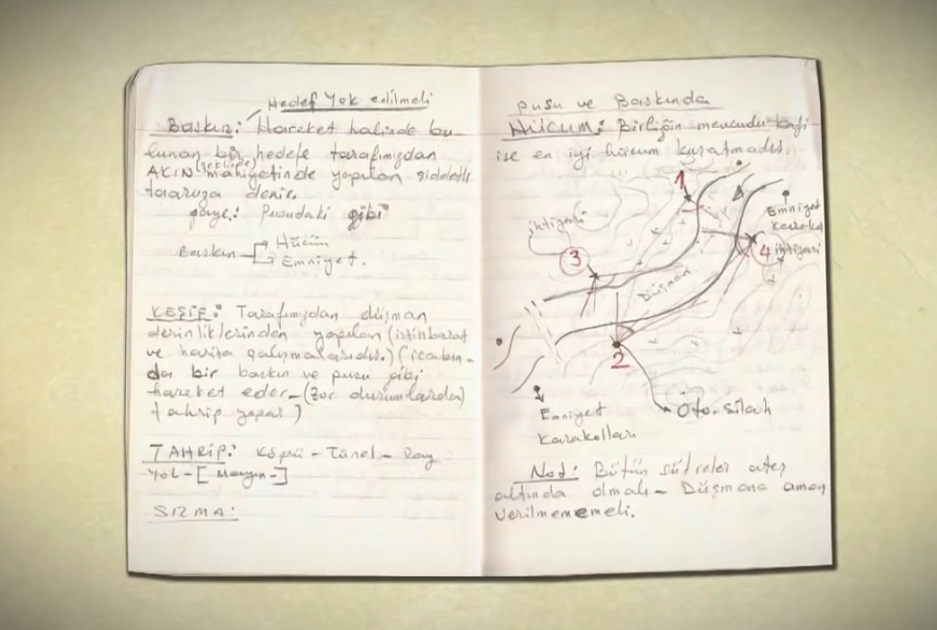 Hedef Yok edilmeli
Baskın: Hareket halinde bu-
lunan bir hedefe tarafımızdan
AKIN (şeklinde) mahiyetinde yapılan şiddetli
taaruza denir.
görye: Pusudaki gibi
Baskın Hücum
Emniyet.
KEŞİF: Tarafımızdan düşman
derinliklerinden yapılan (istihbarat
ve harita çalışmalarıdır.) (icabın-
da bir baskın ve pusu gibi
hareket eder-(zor durumlarda)
tahrip yapar)
TAHRİP: Köprü - Tünel - Ray
Yol - [ Mayın - ]
SIZMA:
pusu ve Baskında
HÜCUM: Birliğin mevcudu kafi
ise en iyi hücum kuşatmadır.
1
Emniyet
Karakol
ihtiyari
3
4 ihtiyari
Düşman
2
Emniyet
Karakolları
Oto. Silah
Not: Bütün sütreler ateş
altında olmalı - Düşmana aman
verilmememeli.